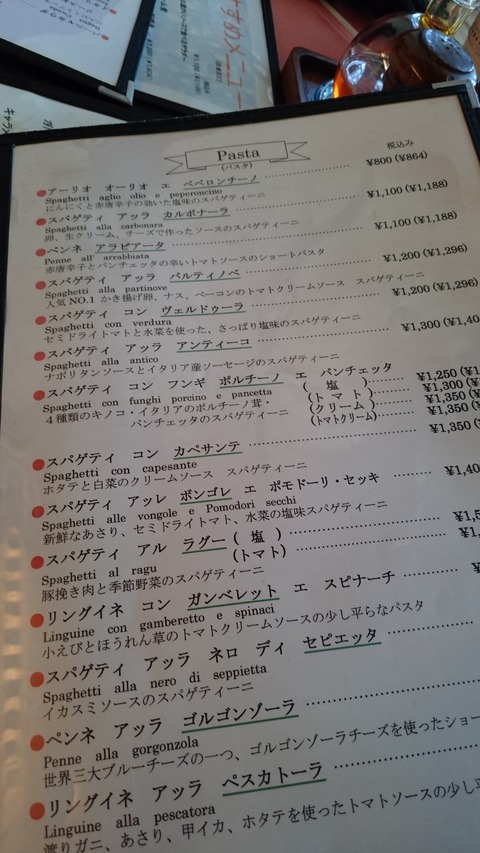 すすめメニュー
Pasta
(パスタ)
税込み
アーリオ オーリオ エ ペペロンチーノ ¥800 (¥864)
Spaghetti aglio olio e peperoncino
にんにくと赤唐辛子の効いた塩味のスパゲティーニ
スパゲティ アッラ カルボナーラ ¥1,100 (¥1,188)
Spaghetti alla carbonara
卵、生クリーム、チーズで作ったソースのスパゲティーニ
ペンネ アラビアータ ¥1,100 (¥1,188)
Penne all' arrabbiata
赤唐辛子とパンチェッタの辛いトマトソースのショートパスタ
スパゲティ アッラ パルティノペ ¥1,200 (¥1,296)
Spaghetti alla partinove
人気 NO.1 かき揚げ卵、ナス、ベーコンのトマトクリームソース スパゲティーニ
スパゲティ コン ヴェルドゥーラ ¥1,200 (¥1,296)
Spaghetti con verdura
セミドライトマトと水菜を使った、さっぱり塩味のスパゲティーニ
スパゲティ アッラ アンティーコ ¥1,300 (¥1,40
Spaghetti alla antico
ナポリタンソースとイタリア産ソーセージのスパゲティーニ
スパゲティ コン フンギ ポルチーノ エ パンチェッタ
Spaghetti con funghi porcino e pancetta ( 塩 ) ¥1,250 (¥1
4種類のキノコ・イタリアのポルチーノ茸・ (トマト) ¥1,300 (¥
パンチェッタのスパゲティーニ (クリーム) ¥1,350 (¥
(トマトクリーム) ¥1,350 (¥
スパゲティ コン カペサンテ ¥1,350 (¥
Spaghetti con capesante
ホタテと白菜のクリームソース スパゲティーニ
スパゲティ アッレ ボンゴレ エ ポモドーリ・セッキ ¥1,40
Spaghetti alle vongole e Pomodori secchi
新鮮なあさり、セミドライトマト、水菜の塩味スパゲティーニ
スパゲティ アル ラグー ( 塩 ) ¥1,5
(トマト) ¥1,
Spaghetti al ragu
豚挽き肉と季節野菜のスパゲティーニ
リングイネ コン ガンベレット エ スピナーチ ¥
Linguine con gamberetto e spinaci
小えびとほうれん草のトマトクリームソースの少し平らなパスタ
スパゲティ アッラ ネロ ディ セピエッタ
Spaghetti alla nero di seppietta
イカスミソースのスパゲティーニ
ペンネ アッラ ゴルゴンゾーラ
Penne alla gorgonzola
世界三大ブルーチーズの一つ、ゴルゴンゾーラチーズを使ったショー
リングイネ アッラ ペスカトーラ
Linguine alla pescatora
渡りガニ、あさり、甲イカ、ホタテを使ったトマトソースの少し平